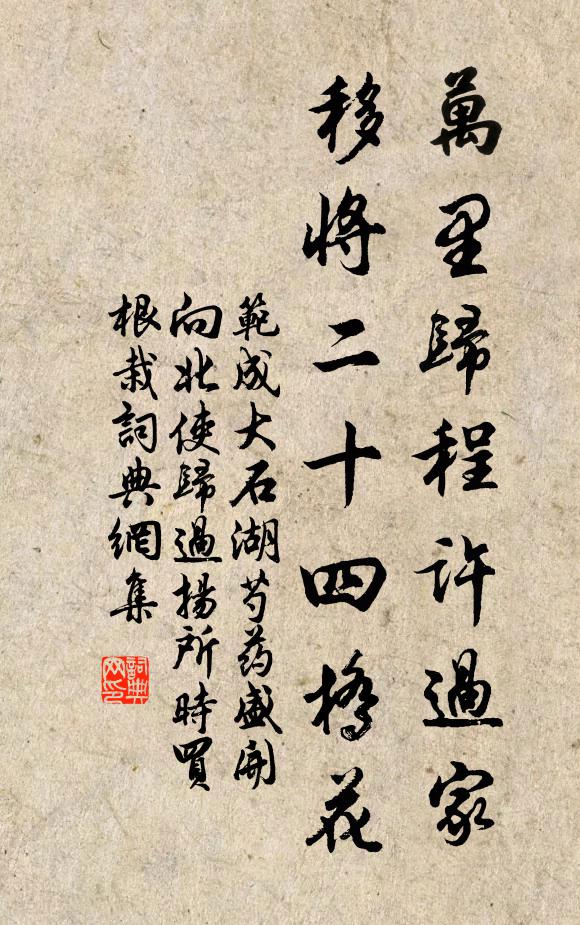 萬里歸程許過家
移將二十四橋花
範成大石湖芍药盛開
向北使歸過揚所時買
根栽詞典網集
詞典网印